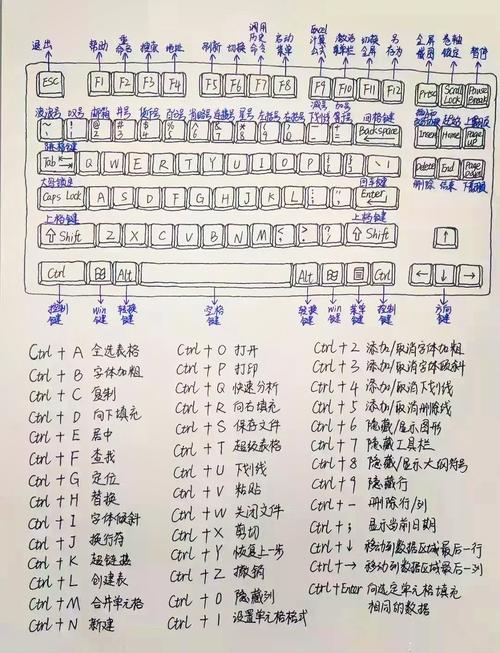 退出 帮助 重命名 搜索 地址 刷新 切换 调用历史命令 启动菜单 Excel计算公式 激活菜单栏 切换全屏 另存为 全屏截图 卷轴锁定 暂停
ESC F1 F2 F3 F4 F5 F6 F7 F8 F9 F10 F11 F12 Prtsc Scroll Lock Pause Break
波浪号 叹号 邮箱 井号 百分号 左括号 右括号 减号下划线 加号等号 回格键
~ ! 1 @ 2 # 3 $ 4 % 5 Backspace Insert Home Page up
Tab Q W E R T Y U I O P
大写锁定 回车键 删除 结束
Caps Lock A S D F G H J K L Enter Delete End
上档键 上档键
Shift Z X C V B N M Shift ↑
Ctrl Alt Alt Ctrl ← ↓ →
控制键 win键 转换键 空格键 转换键 win键 菜单键 控制键 方向键
Ctrl + A 全选表格
Ctrl + B 字体加粗
Ctrl + C 复制
Ctrl + D 向下填充
Ctrl + E 居中
Ctrl + F 查找
Ctrl + G 定位
Ctrl + H 替换
Ctrl + I 字体倾斜
Ctrl + J 换行符
Ctrl + K 超链接
Ctrl + L 创建表
Ctrl + M 合并单元格
Ctrl + N 新建
Ctrl + O 打开
Ctrl + P 打印
Ctrl + Q 快速分析
Ctrl + R 向右填充
Ctrl + S 保存文件
Ctrl + T 超级表格
Ctrl + U 下划线
Ctrl + V 粘贴
Ctrl + W 关闭文件
Ctrl + X 剪切
Ctrl + Y 恢复上一步
Ctrl + Z 撤销
Ctrl + 0 隐藏列
Ctrl + 1 设置单元格格式
Ctrl + 2 添加/取消字体加粗
Ctrl + 3 添加/取消字体倾斜
Ctrl + 4 添加/取消下划线
Ctrl + 5 添加/取消删除线
Ctrl + 6 隐藏/显示图形
Ctrl + 7 隐藏工具栏
Ctrl + 8 隐藏/显示大纲符号
Ctrl + 9 隐藏行
Ctrl + - 删除行/列
Ctrl + ; 显示当前日期
Ctrl + ↓ 移动到数据区域最后一行
Ctrl + → 移动到数据区域最后一列
Ctrl+Enter 向选定单元格填充
相同的数据